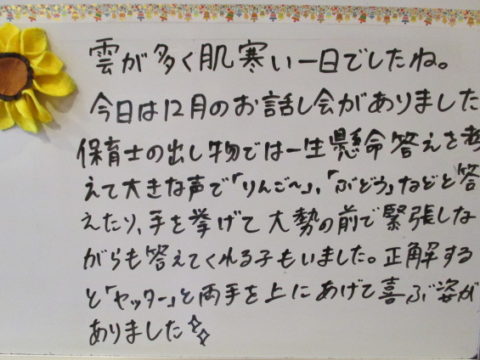 雲が多く肌寒い一日でしたね。
今日は12月のお話し会がありました
保育士の出し物では一生懸命答えを考
えて大きな声で「りんご〜」,「ぶどう」などと答
えたり、手を挙げて大勢の前で緊張しな
がらも答えてくれる子もいました。正解する
と「ヤッター」と両手を上にあげて喜ぶ姿が
ありました